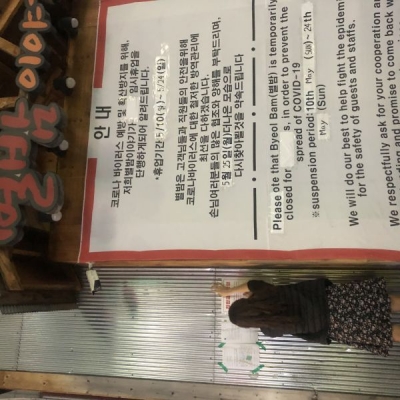 별밤 이야
안 내
코로나 바이러스 예방 및 확산방지를 위해,
저희별밤이야기가 임시휴업을
단행하게되어 알려드립니다.
*휴업기간 5/10(일)~5/24(일)
별밤은 고객님들과 직원들의 안전을위해
코로나바이러스에 대한 철저한 방역관리에
최선을 다하겠습니다.
손님여러분들의 많은 협조와 양해를 부탁드리며,
5월 25일(월)더나은 모습으로
다시찾아뵐것을 약속드립니다
Please ote that Byeol Bam(별밤) is temporarily
closed for s, in order to prevent the
spread of COVID-19
※suspension period:10th May (Sun)~ 24th
May (Sun)
We will do our best to help fight the epidem
for the safety of guests and staffs.
We respectfully ask for your cooperation an
and promise to come back w